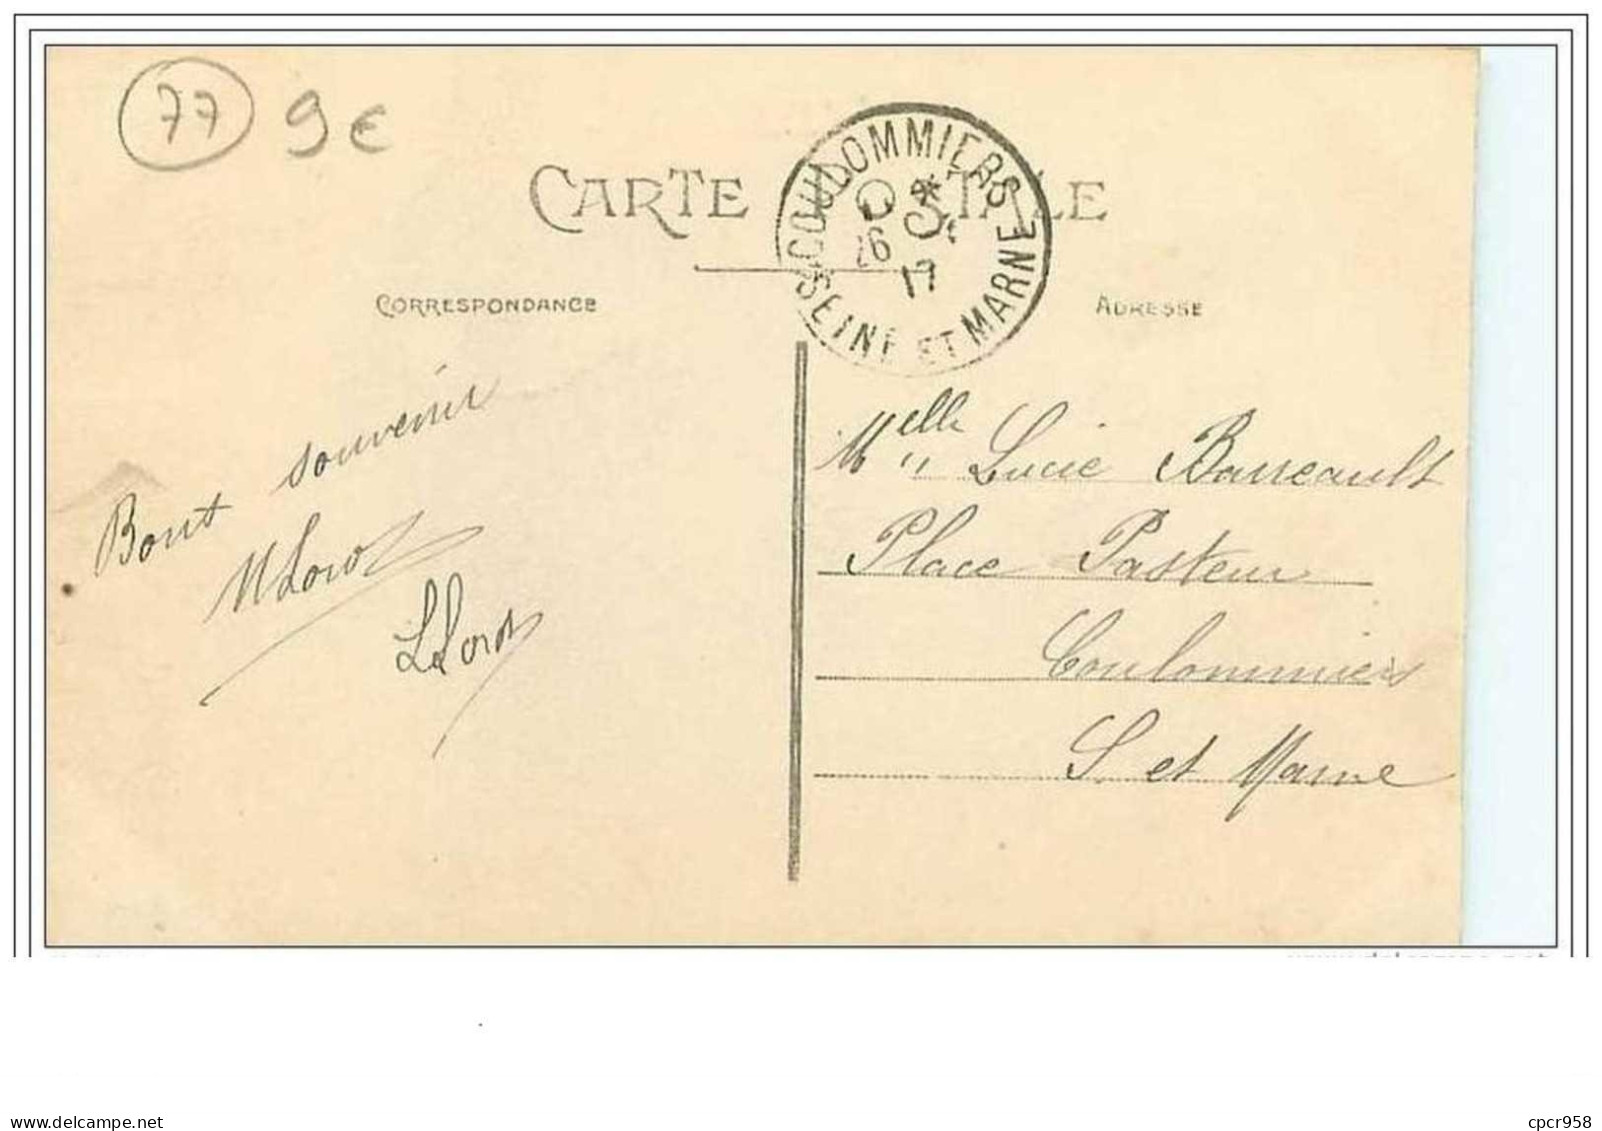 77 9€
CARTE POSTALE
COULOMMIERS
SEINE ET MARNE
26
17
CORRESPONDANCE
ADRESSE
Bont souvenir
M Lorot
L Lorot
Melle Lucie Barreault
Place Pasteur
Coulommiers
S. et Marne
www.delcampe.net
cpcr958